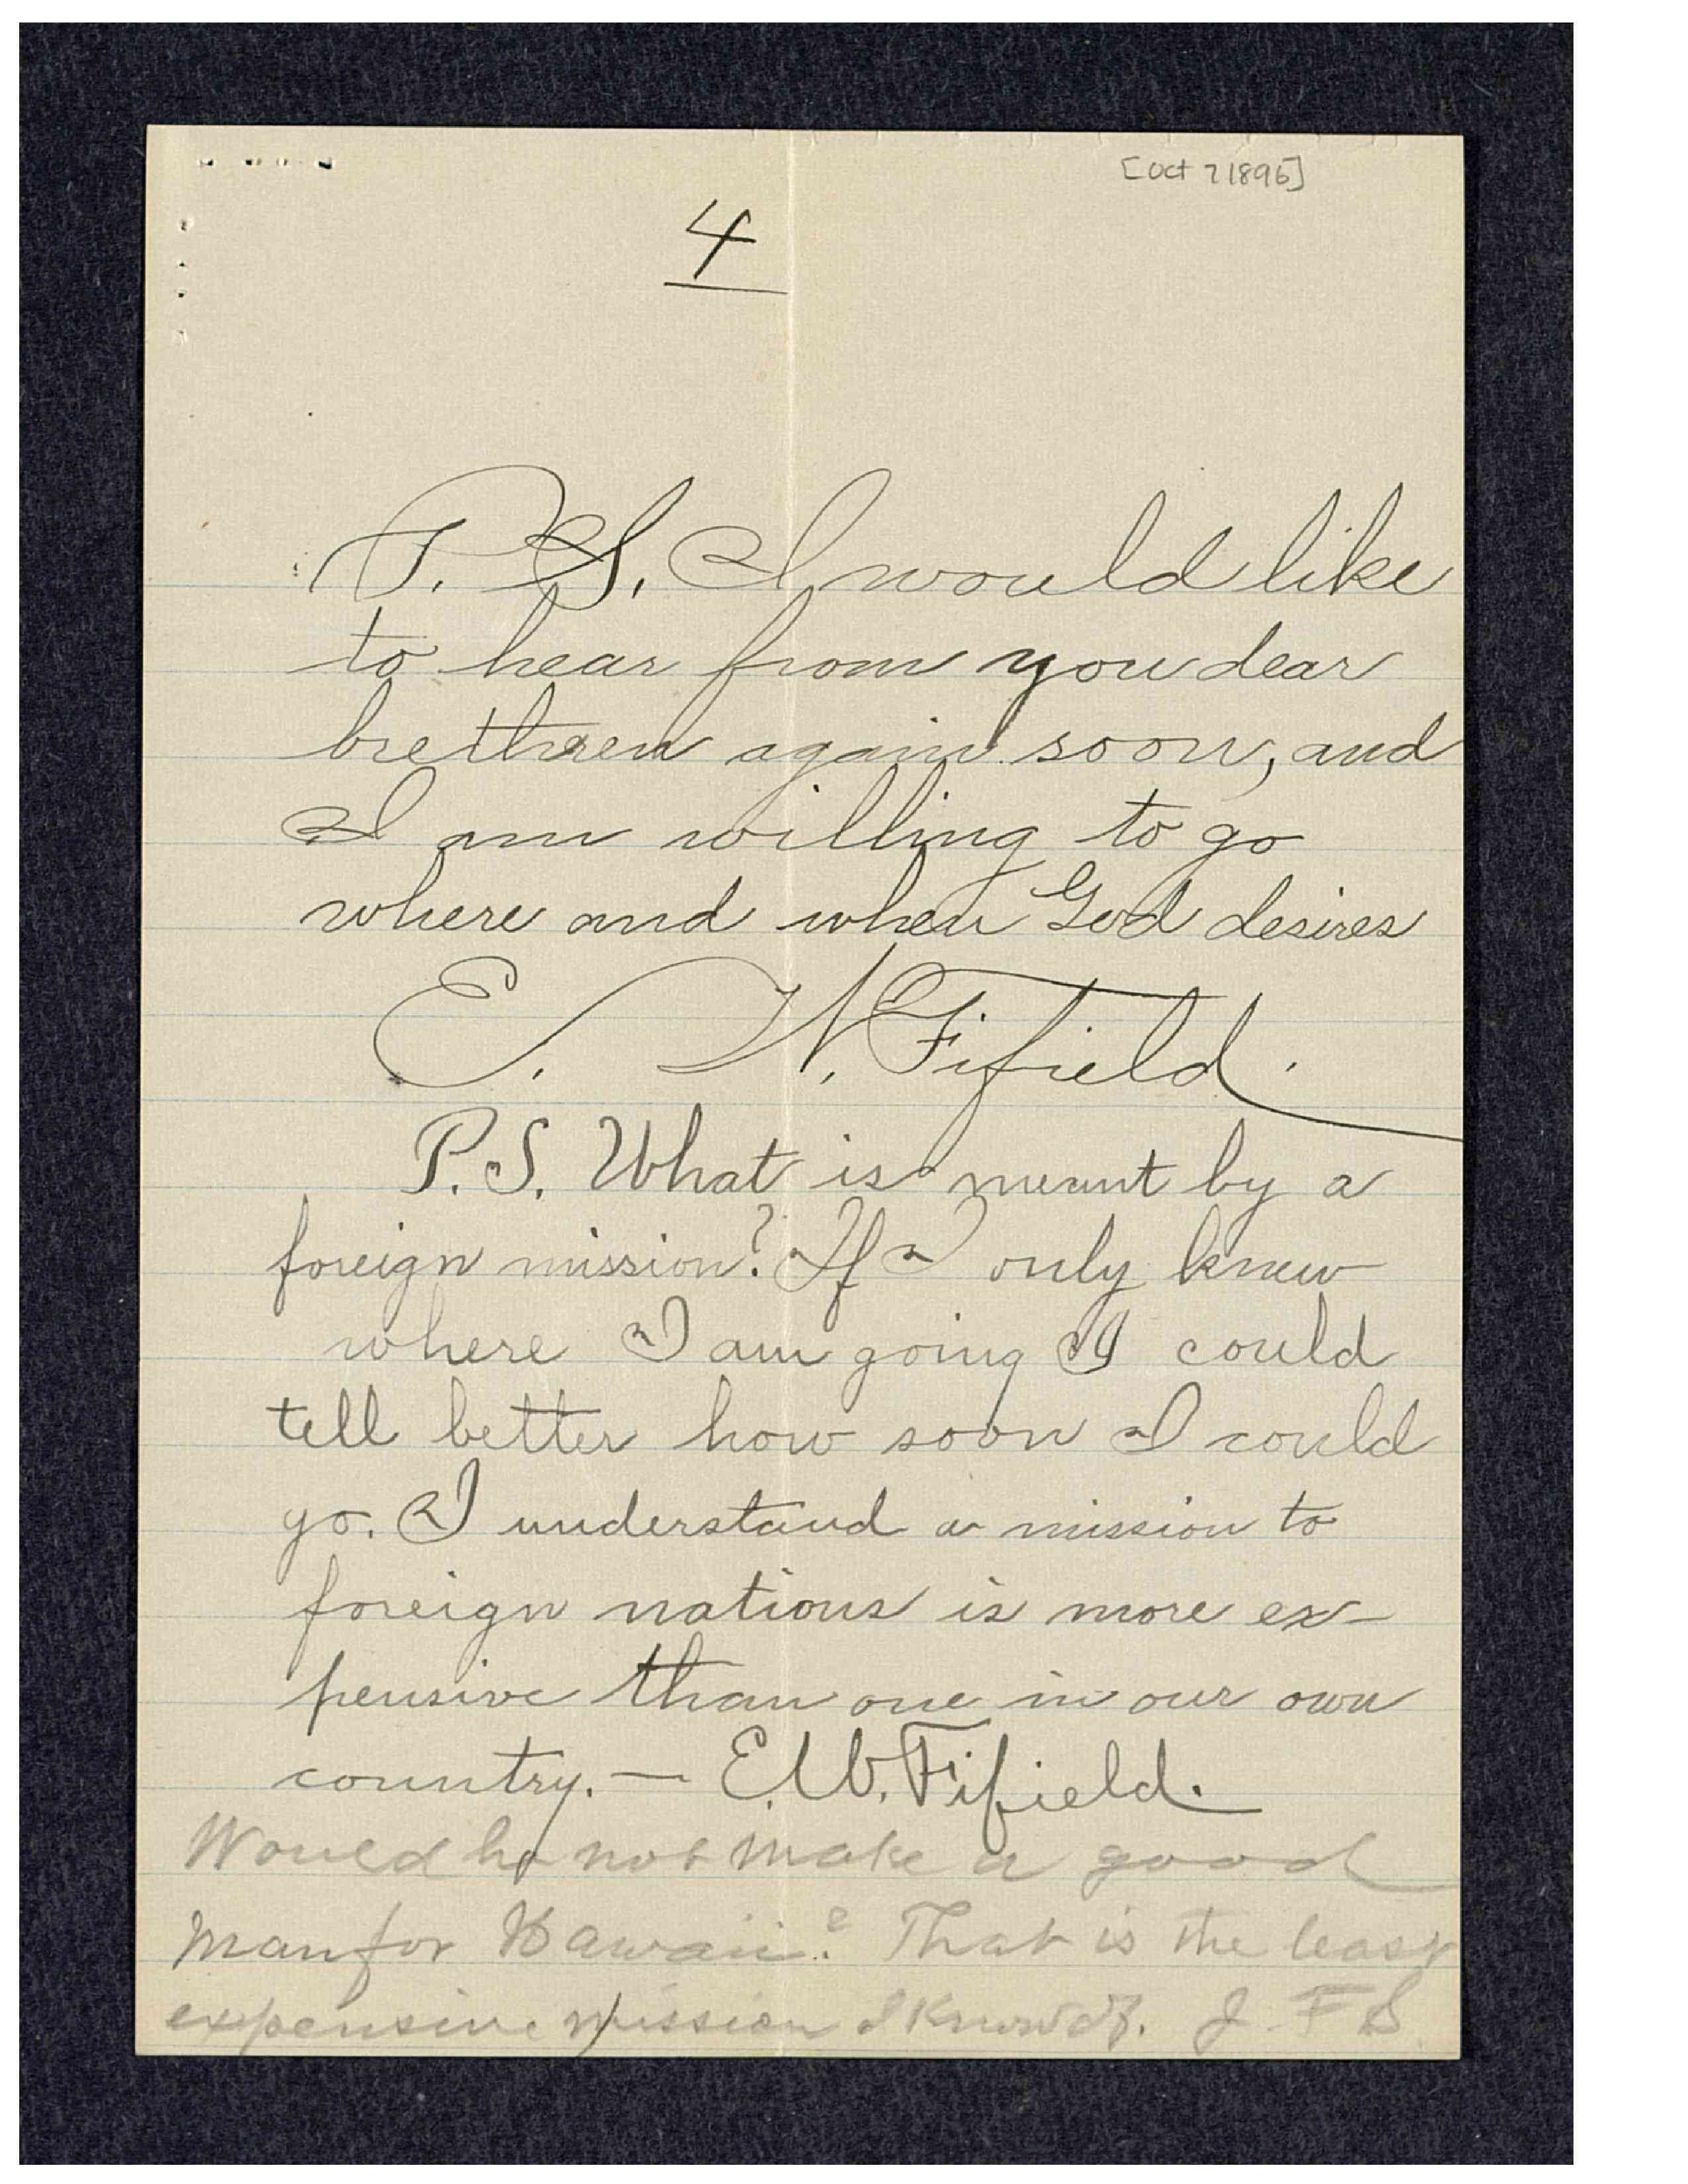 [Oct 7 1896]
4
P. S. I would like
to hear from you dear
brethren again soon, and
I am willing to go
where and when God desires
E. W. Fifield.
P.S. What is meant by a
foreign mission? If I only knew
where I am going I could
tell better how soon I could
go. I understand a mission to
foreign nations is more ex-
pensive than one in our own
country. — E. W. Fifield.
Would he not make a good
man for Hawaii? That is the least
expensive mission I know of. J F S